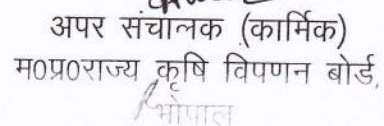 अपर संचालक (कार्मिक)
म०प्र०राज्य कृषि विपणन बोर्ड,
भोपाल